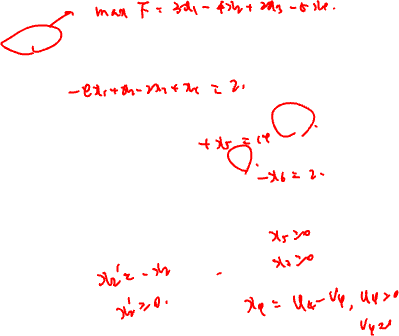 max F = 3x₁ - 4x₂ + 2x₃ - 5x₄.
x₁ + x₂ - 2x₃ + x₄ = 2.
+ x₅ = 14
- x₆ = 2.
x₅ ≥ 0
x₂' = - x₂
x₂' ≥ 0.
x₄ = u₄ - v₄, u₄ ≥ 0
v₄ ≥